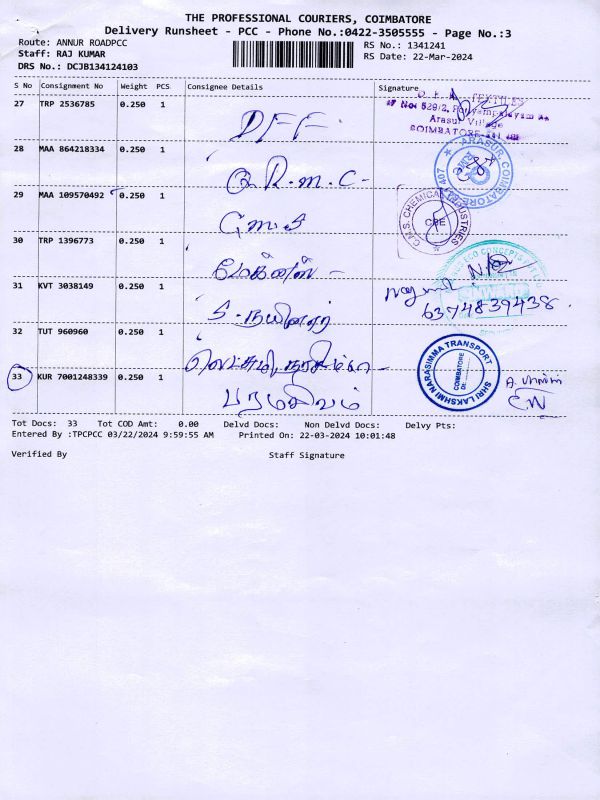 THE PROFESSIONAL COURIERS, COIMBATORE
Delivery Runsheet - PCC - Phone No.:0422-3505555 - Page No.:3
Route: ANNUR ROADPCC
RS No.: 1341241
Staff: RAJ KUMAR
RS Date: 22-Mar-2024
DRS No.: DCJB134124103
S No Consignment No Weight PCS Consignee Details Signature
27 TRP 2536785 0.250 1
TEXTILES
Arasur Village
COIMBATORE
DFF
28 MAA 864218334 0.250 1
ARASUR, COIMBATORE 407
R.M.C
29 MAA 109570492 0.250 1
C.M.S. CHEMICAL INDUSTRIES
CBE
GMS
30 TRP 1396773 0.250 1
ECO CONCEPTS
31 KVT 3038149 0.250 1
6374839438
S. நயினார்
32 TUT 960960 0.250 1
SHRI LAKSHMI NARASIMMA TRANSPORT
COIMBATORE
லெட்சுமி நரசிம்மா
33 KUR 7001248339 0.250 1
பரமசிவம்
Tot Docs: 33 Tot COD Amt: 0.00 Delvd Docs: Non Delvd Docs: Delvy Pts:
Entered By :TPCPCC 03/22/2024 9:59:55 AM Printed On: 22-03-2024 10:01:48
Verified By Staff Signature